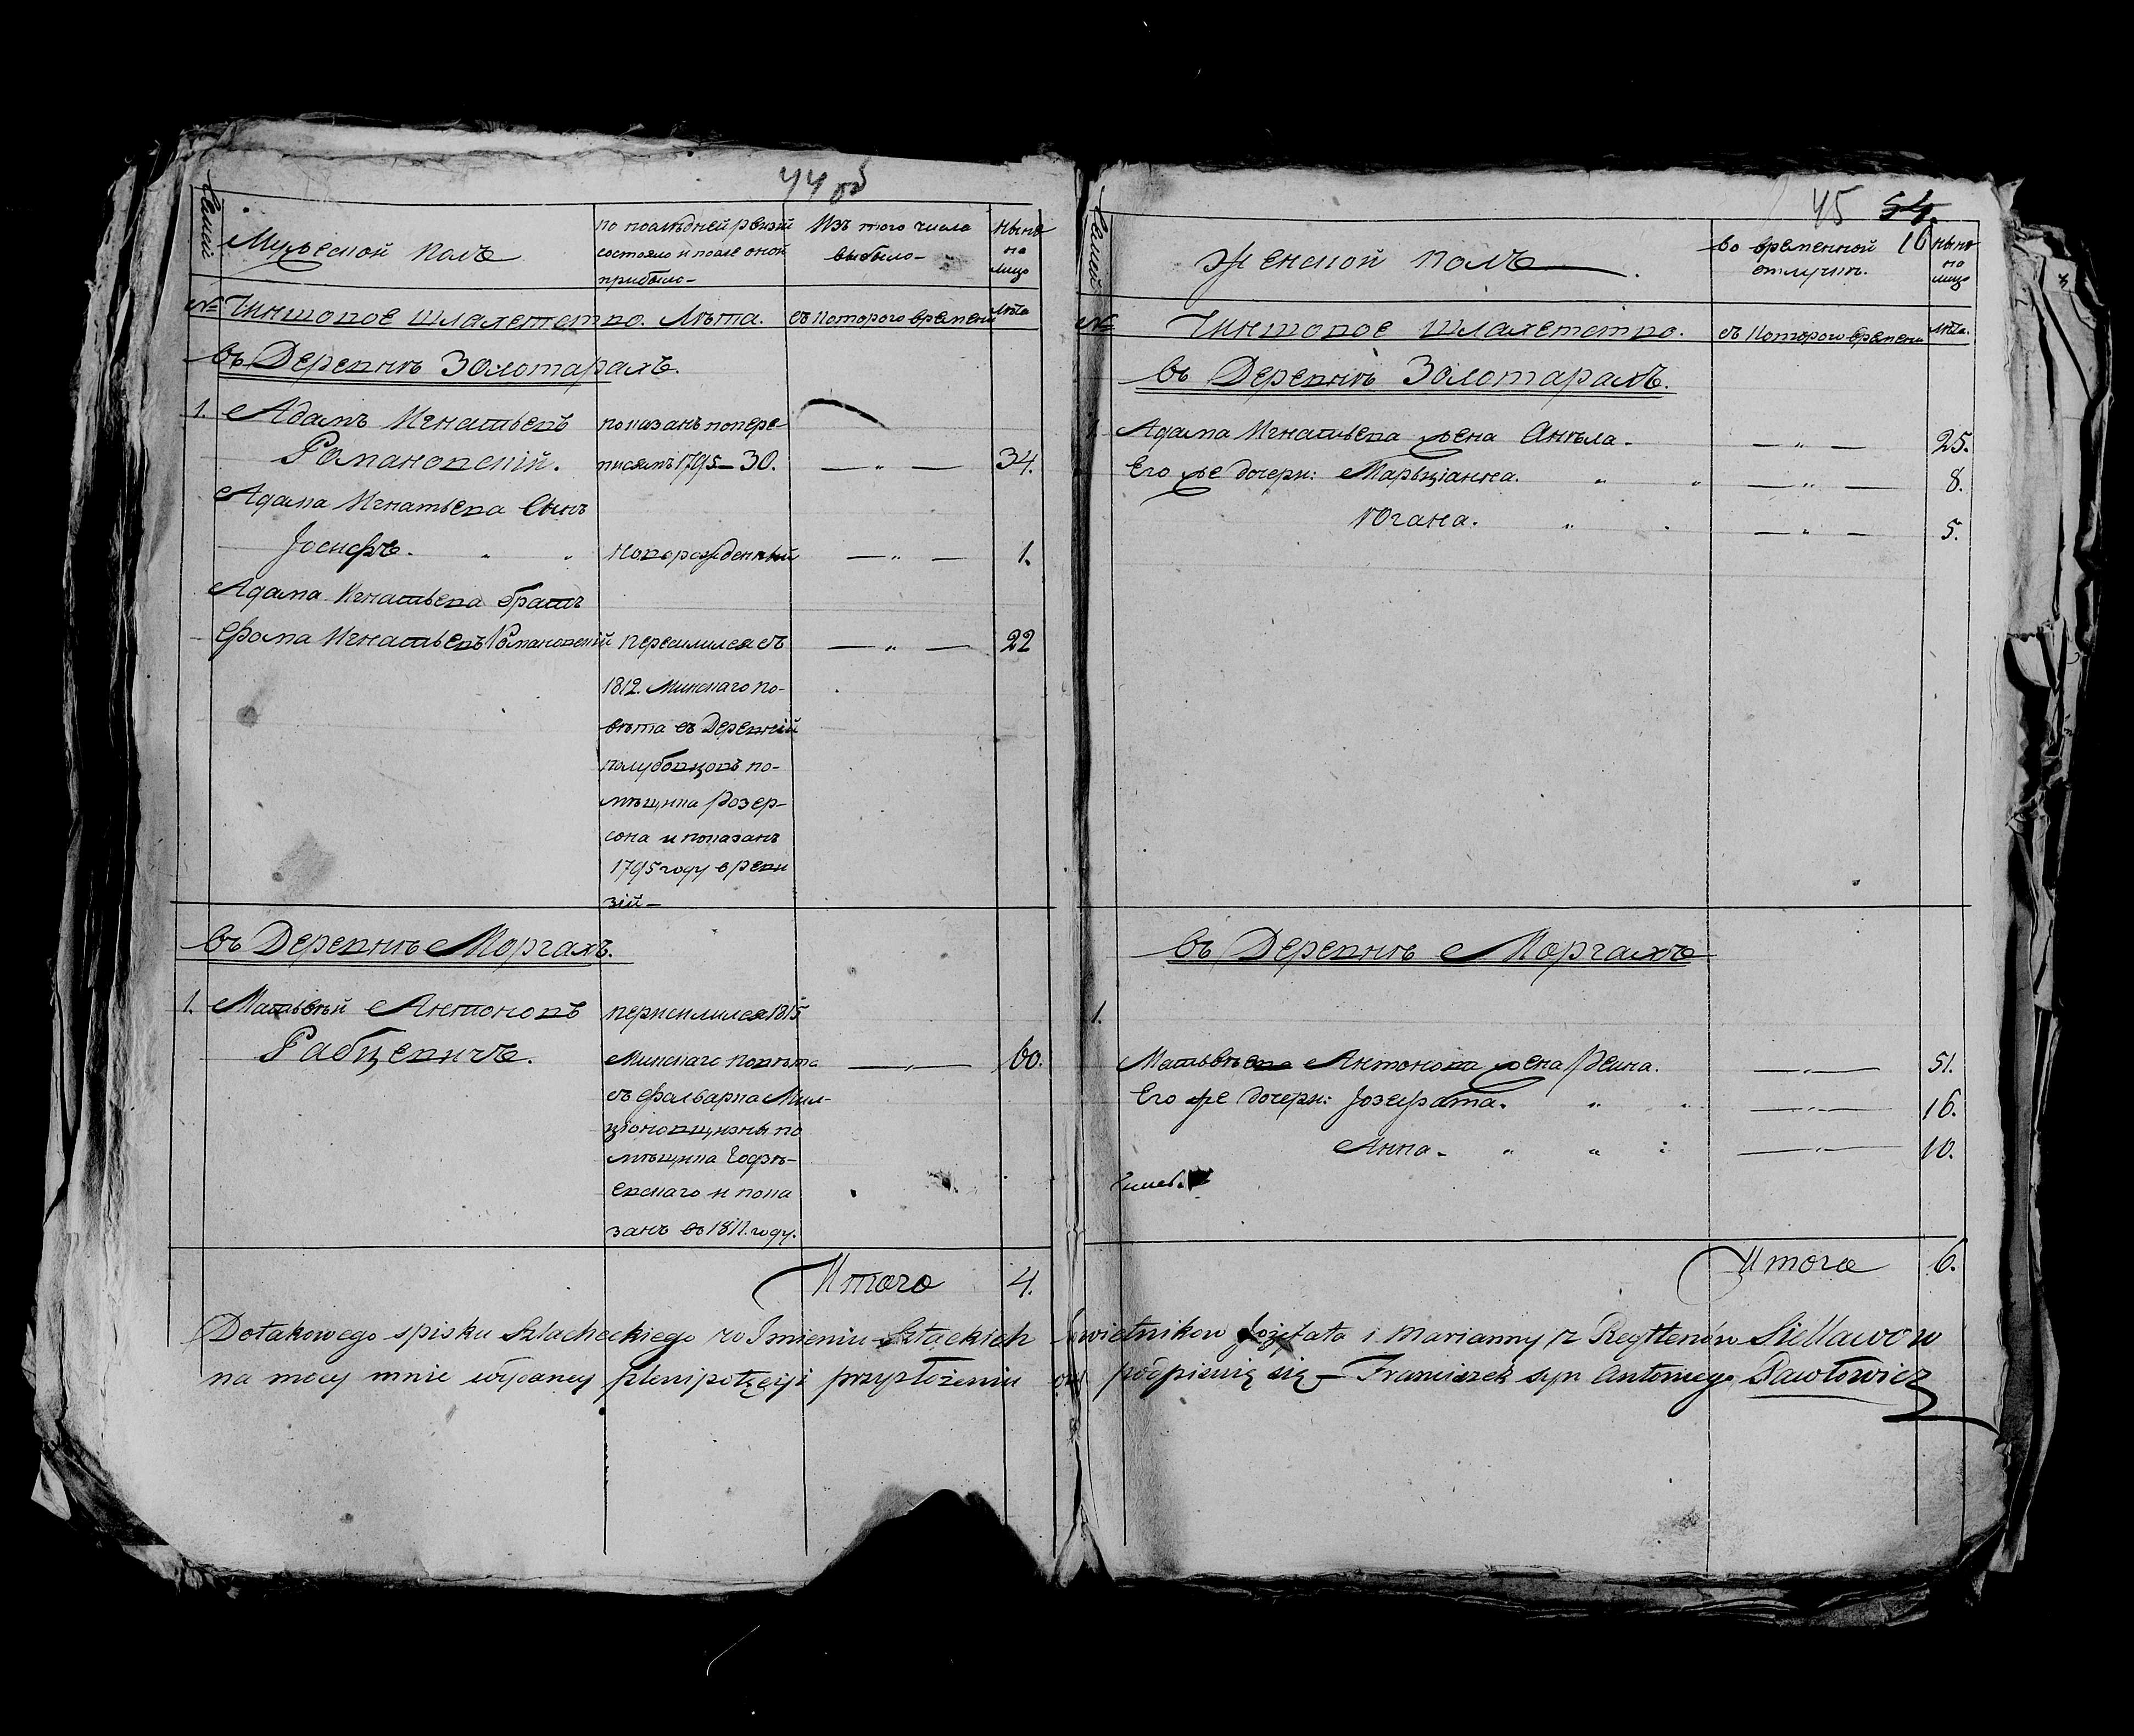 44 об
Семьи
Мужеской полъ
по последней ревизіи
состояло и после оной
прибыло-
Изъ того числа
выбыло-
Ныне
на
лицо
№ Чиншовое шляхетство. Лѣта. съ которого времени Лѣта
въ Деревнѣ Золотарахъ.
1. Адамъ Игнатьевъ показанъ по пере-
Романовскій. писямъ 1795-30. — „ — 34.
Адама Игнатьева Сынъ
Іосифъ. „ „ Новорожденный — „ — 1.
Адама Игнатьева братъ
Фома Игнатьевъ Романовскій переселился съ — „ — 22
1812. Минскаго по-
вѣта съ Деревній
Полубовцовъ по-
мѣщика Розер-
сона и показанъ
1795 году в реви
зій-
въ Деревнѣ Моргахъ.
1. Матьвѣй Антоновъ переселился 1815
Рабцевичъ. Минскаго повѣта — „ — 60.
съ фальварка Мил-
ціоновщизны по
мѣщика
евскаго и пока
занъ въ 1811. году.
Итого 4.
45 54.
16
Семьи
Женской полъ
во временной
отлучкѣ.
ныне
на
лицо
№ Чиншовое шляхетство. съ Которого времени Лѣта.
въ Деревнѣ Золотарахъ.
Адама Игнатьева жена Анѣла. — „ — 25.
Его же дочери: Марьціанна. „ „ — „ — 8.
Югана. „ . — „ — 5.
въ Деревнѣ Моргахъ
1.
Матьвѣева Антонова жена Реина. — „ — 51.
Его же дочери: Јозефата. „ „ — „ — 16.
Анна. „ „ : — „ — 10.
Итого 6.
Do takowego spisku Szlacheckiego w Imieniu Szlackich Sowietnikow Jozefata i Marianny z Reyttenów Siellawow
na mocy mnie wydaney plenipotęcyi przyłożeniu podpisuię się - Franciszek syn Antoniego Pawłowicz